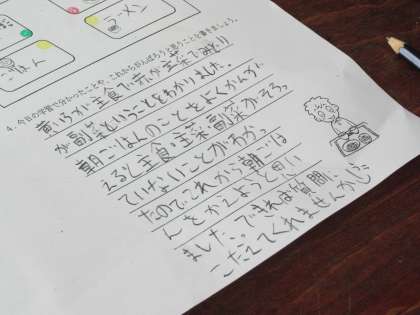 ごはん
ラーメン
4. 今日の学習で分かったことや、これからがんばろうと思うことを書きましょう。
黄いろが主食で赤が主菜でみどり
が副菜ということをわかりました。
朝ごはんのことをよくかんが
えると主食・主菜・副菜がそろっ
ていないことがわかっ
たのでこれから朝ごは
んをかえようと思い
ました。できれば質問に
こたえてくれませんか